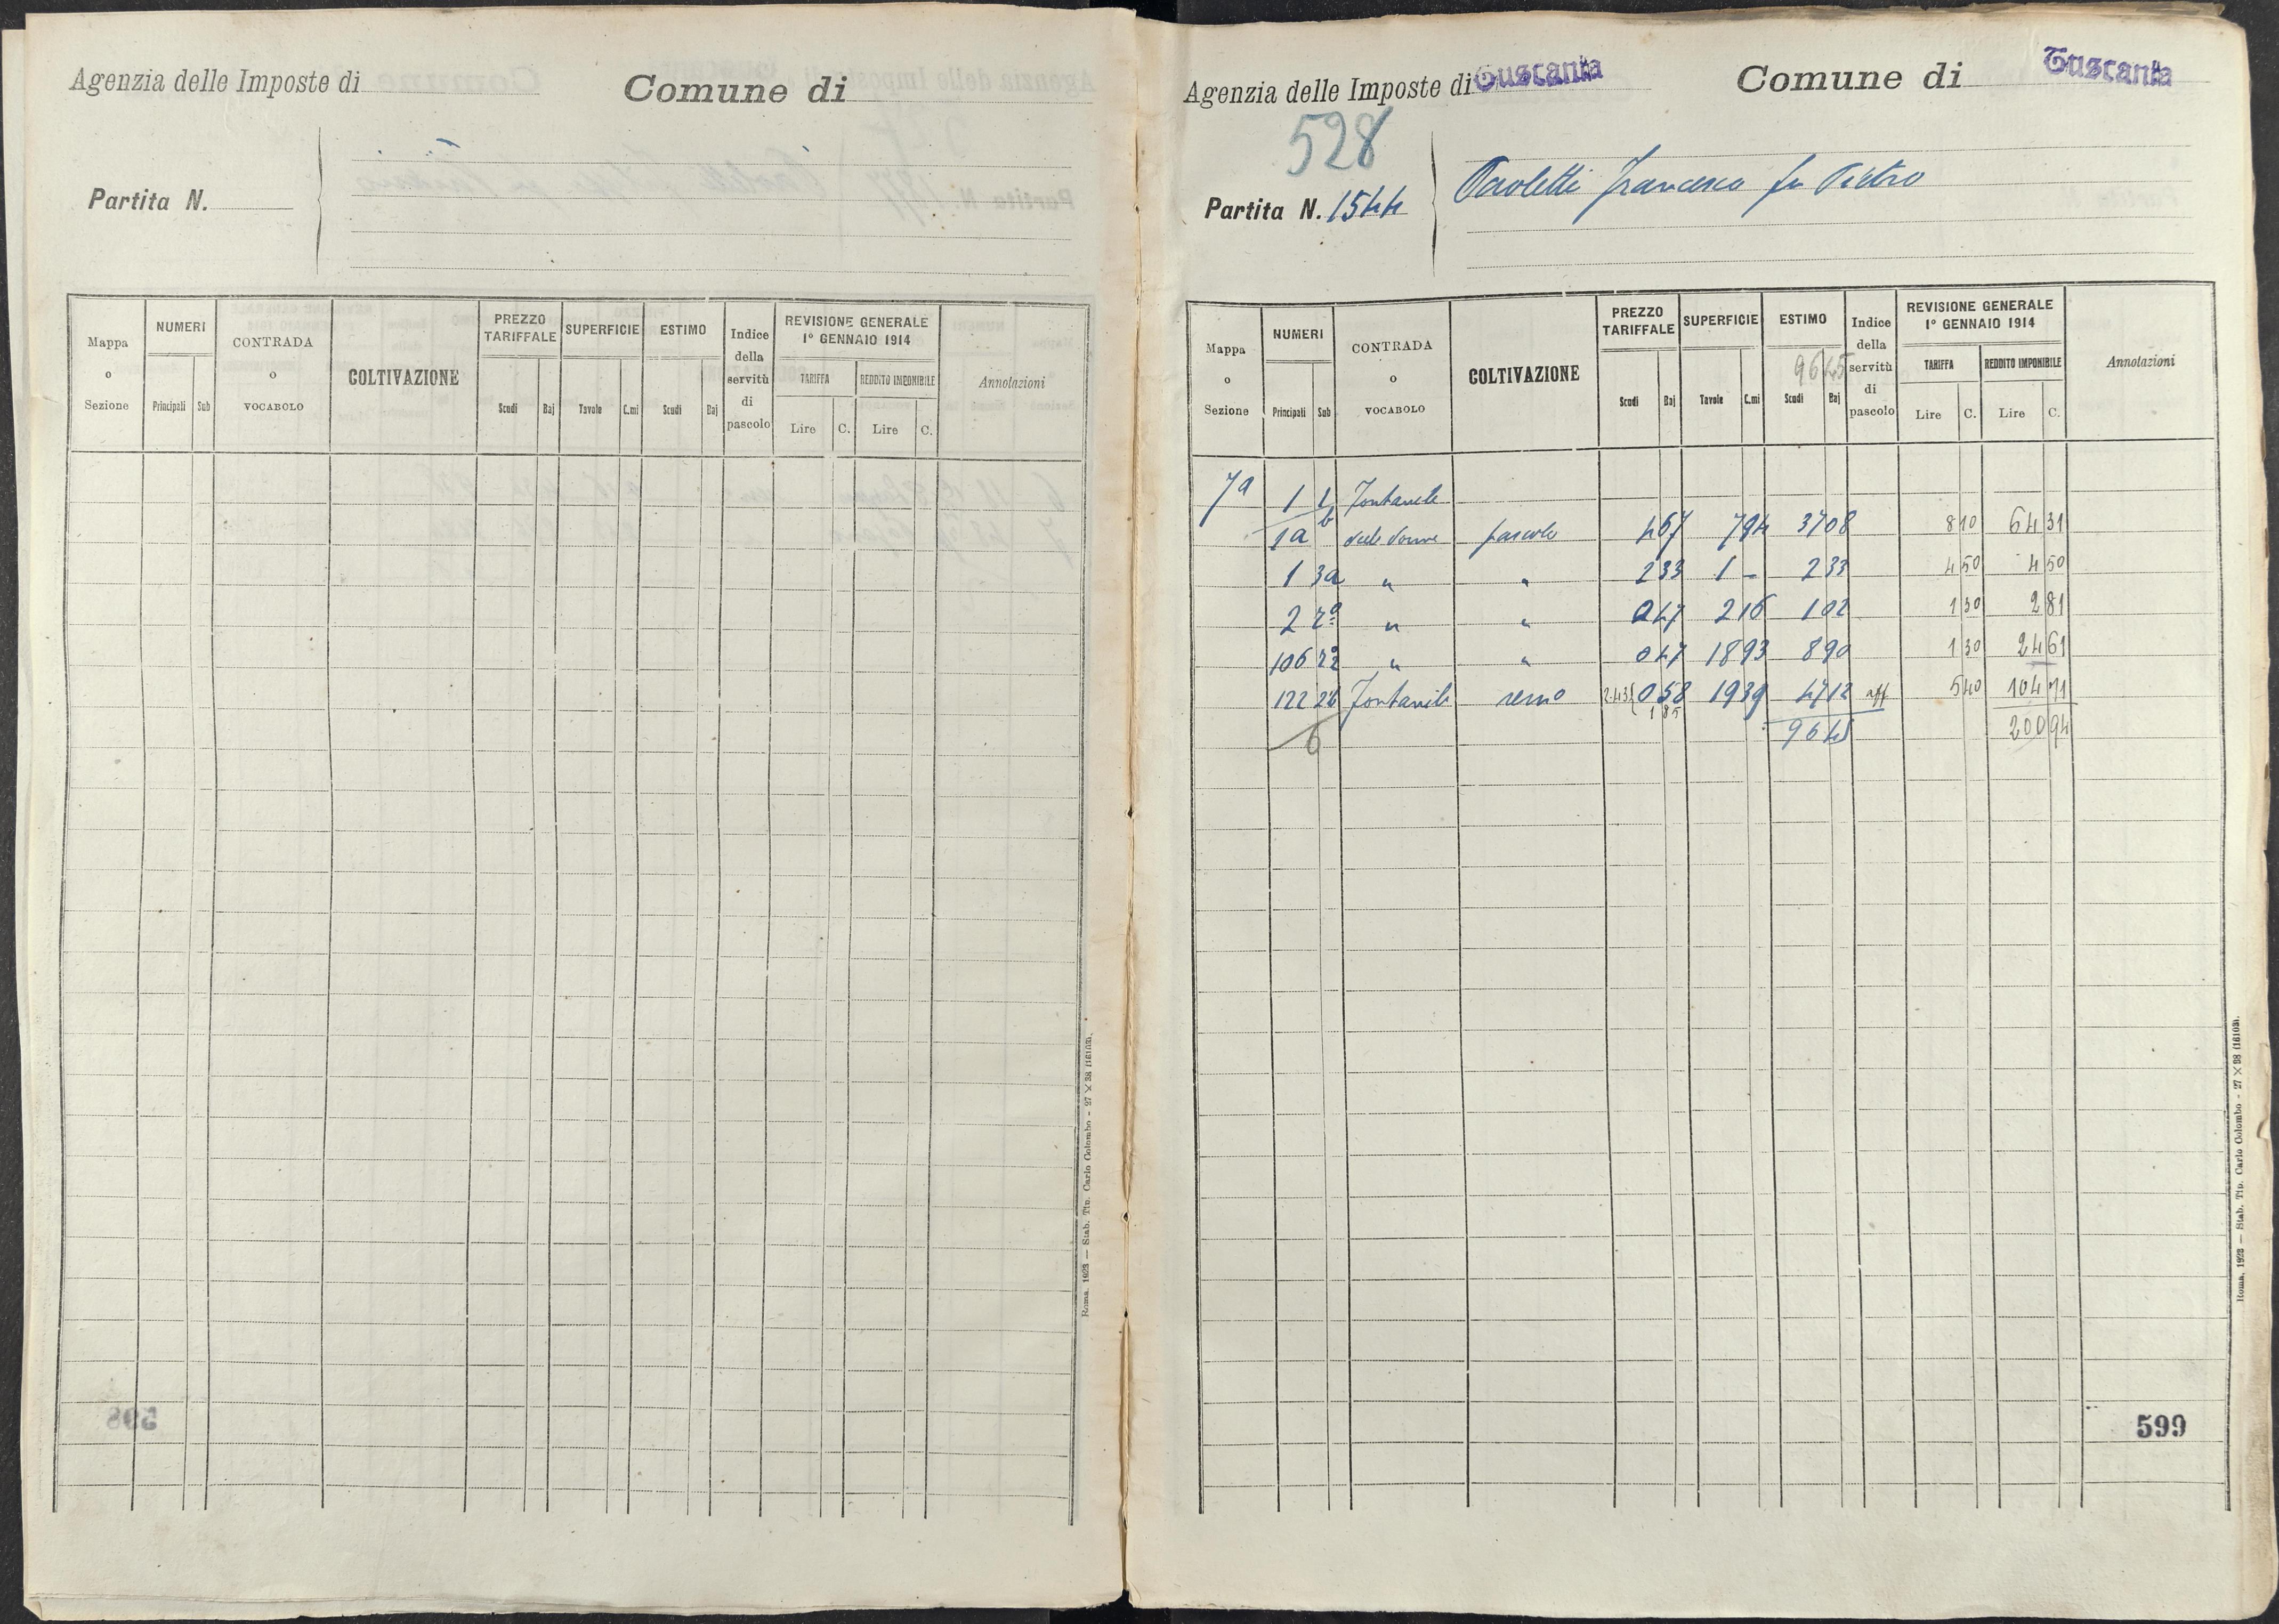 Agenzia delle Imposte di
Comune di
Partita N.
Mappa o Sezione
NUMERI
Principali Sub
CONTRADA o VOCABOLO
COLTIVAZIONE
PREZZO TARIFFALE
Scudi Baj
SUPERFICIE
Tavole C.mi
ESTIMO
Scudi Baj
Indice della servitù di pascolo
REVISIONE GENERALE
1° GENNAIO 1914
TARIFFA REDDITO IMPONIBILE
Lire C. Lire C.
Annotazioni
Roma, 1923 — Stab. Tip. Carlo Colombo - 27 × 38 (16103).
598
Agenzia delle Imposte di Tuscania
Comune di Tuscania
528
Partita N. 1544
Paoletti Francesco fu Pietro
Mappa o Sezione
NUMERI
Principali Sub
CONTRADA o VOCABOLO
COLTIVAZIONE
PREZZO TARIFFALE
Scudi Baj
SUPERFICIE
Tavole C.mi
ESTIMO
9645
Scudi Baj
Indice della servitù di pascolo
REVISIONE GENERALE
1° GENNAIO 1914
TARIFFA REDDITO IMPONIBILE
Lire C. Lire C.
Annotazioni
7a 1 1 Fontanile
1a delle donne pascolo 467 794 3708 8 10 64 31
1 3a " " 2 33 1 - 2 33 4 50 4 50
2 " " 0 47 216 102 1 30 2 81
106 " " 0 47 1893 890 1 30 24 61
122 Fontanile 2.43 0 58 1939 4712 5 40 104 71
1 85
6 9645 200 94
Roma, 1923 — Stab. Tip. Carlo Colombo - 27 × 38 (16103).
599